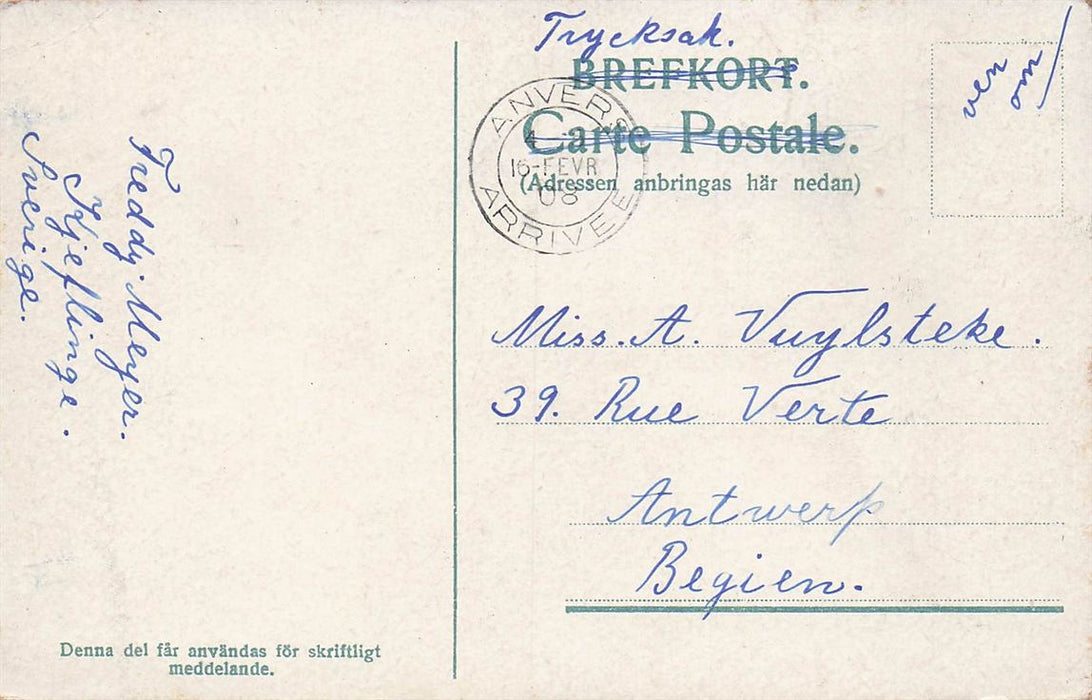 Trycksak.
BREFKORT.
Carte Postale.
(Adressen anbringas här nedan)
ven
om
ANVERS
16-FEVR
08
ARRIVEE
Freddy Meyer.
Kjeflinge.
Sverige.
Miss. A. Vuylsteke.
39. Rue Verte
Antwerp
Begien.
Denna del får användas för skriftligt
meddelande.